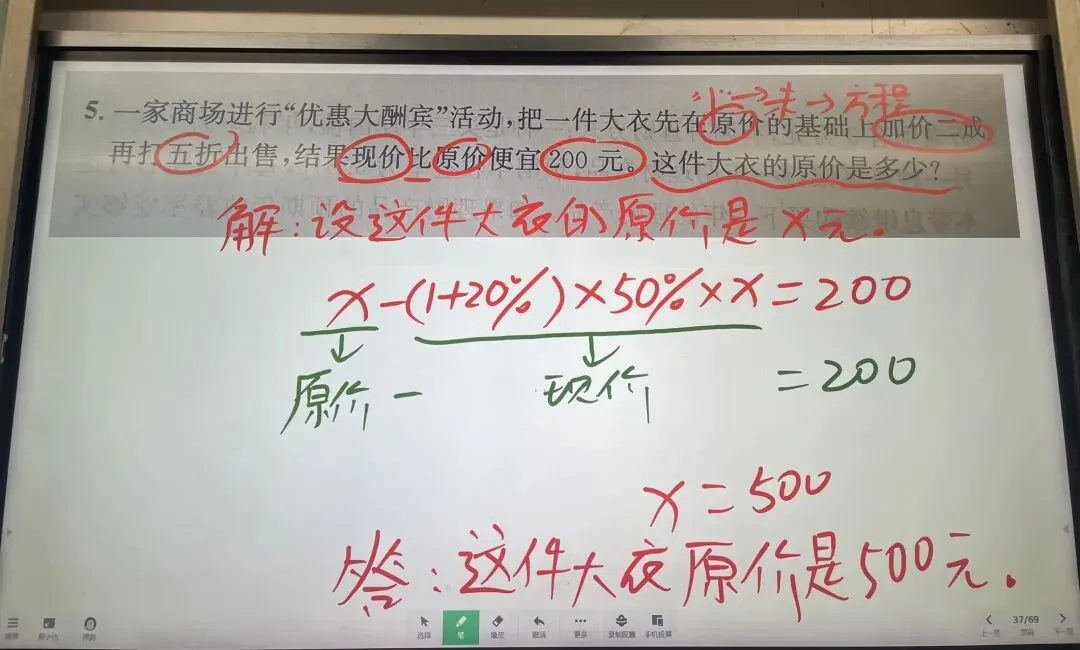 "1"→未→方程
5. 一家商场进行“优惠大酬宾”活动,把一件大衣先在原价的基础上加价二成
再打五折出售,结果现价比原价便宜 200 元。这件大衣的原价是多少?
解:设这件大衣的原价是x元.
x-(1+20%)×50%×x=200
原价 - 现价 =200
x=500
答:这件大衣原价是500元.
选择 笔 橡皮 撤消 更多 录制胶囊 手机投屏
上一页 37/69 下一页